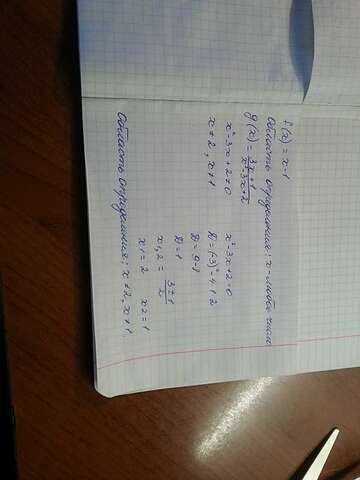 f(x) = x-1
Область определения: x - любое число
g(x) = \frac{3x+1}{x²-3x+2}
x²-3x+2≠0
x≠2, x≠1
x²-3x+2=0
D=(-3)²-4·1·2
D=9-8
D=1
x1,2 = \frac{3±1}{2}
x1=2 x2=1
Область определения: x≠2, x≠1